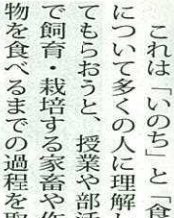 これは「いのち」と「食
について多くの人に理解し
てもらおうと、授業や部活
で飼育・栽培する家畜や作
物を食べるまでの過程を取